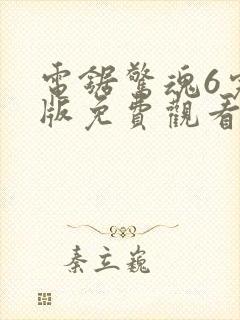 電鋸驚魂6完
版免費觀看
秦立巍